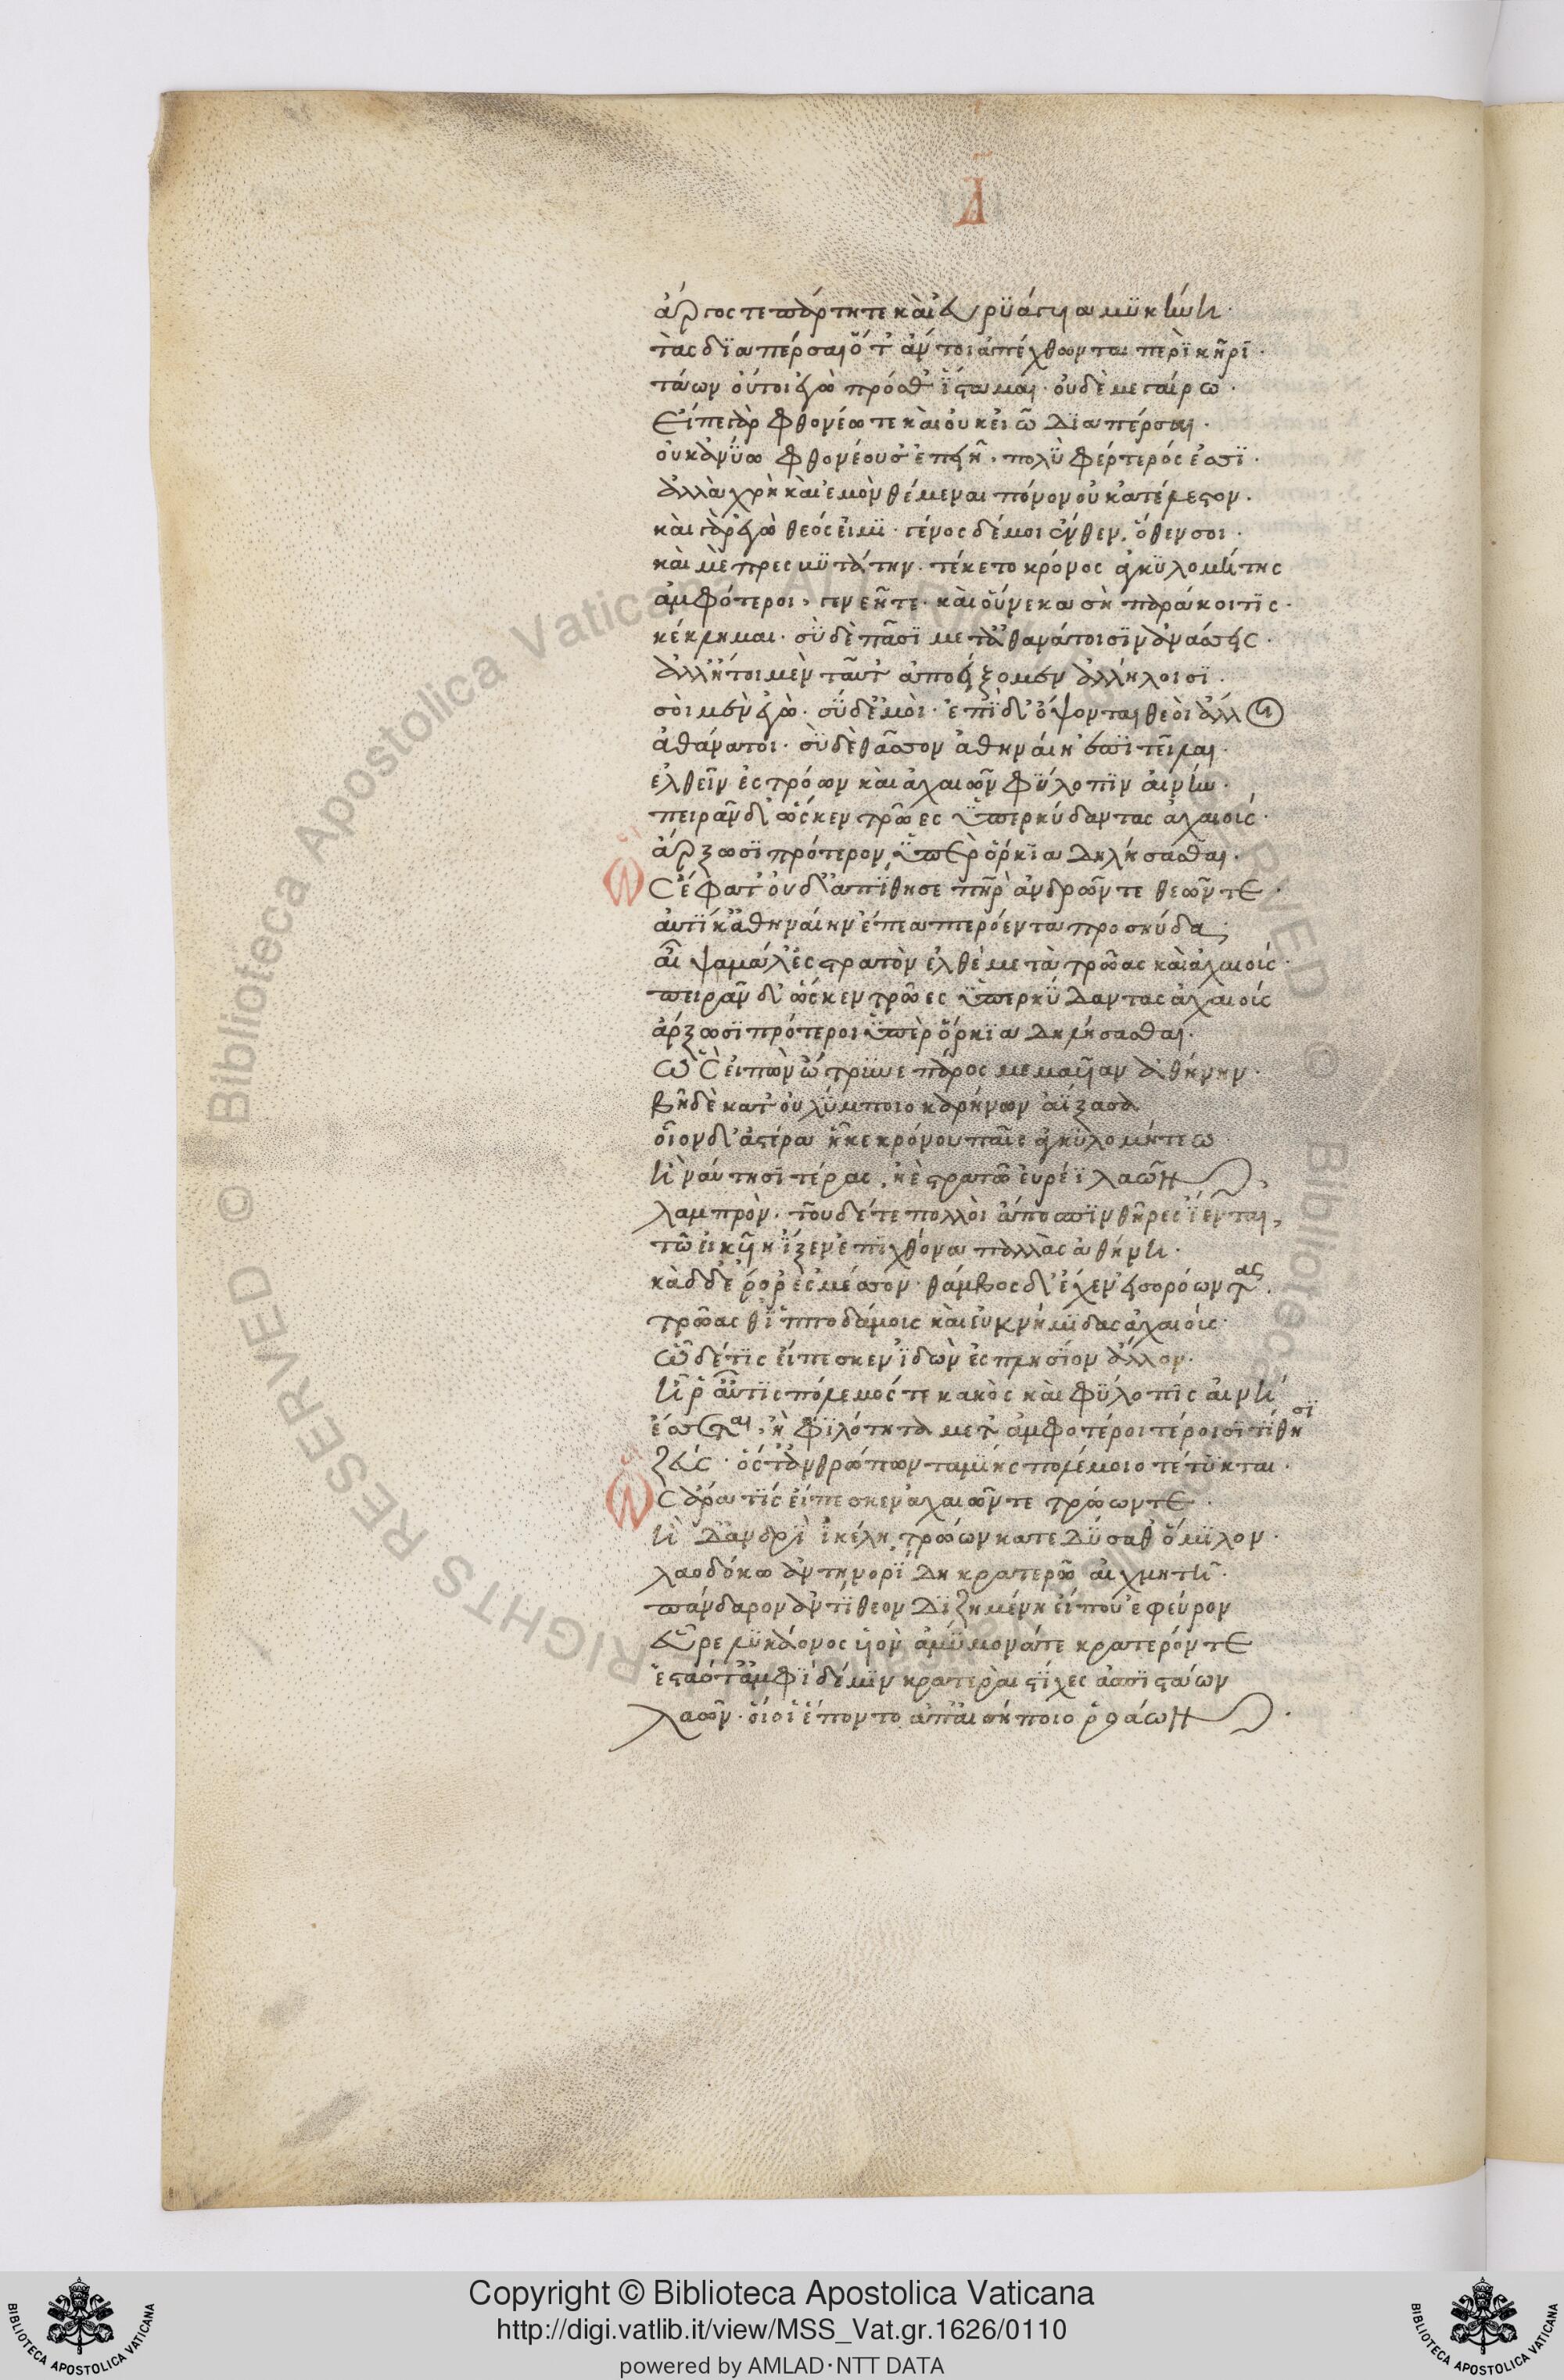 Δ
ἄργος τε σπάρτη τε καὶ εὐρυάγυια μυκήνη·
τὰς διαπέρσαι ὅτ' ἄν τοι ἀπέχθωνται περὶ κῆρι·
τάων οὔτοι ἐγὼ πρόσθ' ἵσταμαι· οὐδὲ μεγαίρω·
Εἴπερ γὰρ φθονέω τε καὶ οὐκ εἰῶ διαπέρσαι·
οὐκ ἀνύω φθονέουσ' ἐπειῆ πολὺ φέρτερός ἐσσι·
ἀλλὰ χρὴ καὶ ἐμὸν θέμεναι πόνον οὐκ ἀτέλεστον·
καὶ γὰρ ἐγὼ θεός εἰμι· γένος δέ μοι ἔνθεν, ὅθεν σοι·
καὶ μὲ πρεσβυτάτην τέκετο κρόνος ἀγκυλομήτης
ἀμφότερον, γενεῆ τε· καὶ οὕνεκα σὴ παράκοιτις·
κέκλημαι· σὺ δὲ πᾶσι μετ' ἀθανάτοισιν ἀνάσσεις·
ἀλλ' ἤτοι μὲν ταῦτ' ἀποείξομεν ἀλλήλοισι·
σοὶ μὲν ἐγὼ· σὺ δ' ἐμοὶ· ἐπὶ δ' ὄψονται θεοὶ ἄλλοι
ἀθάνατοι· σὺ δὲ θᾶσσον ἀθηναίη ἐπιτεῖλαι·
ἐλθεῖν ἐς τρώων καὶ ἀχαιῶν φύλοπιν αἰνήν·
πειρᾶν δ' ὥς κεν τρῶες ὑπερκύδαντας ἀχαιούς·
ἄρξωσι πρότερον ὑπὲρ ὅρκια δηλήσασθαι·
Ὣς ἔφατ' οὐδ' ἀπίθησε πατὴρ ἀνδρῶν τε θεῶν τε·
αὐτίκ' ἀθηναίην ἔπεα πτερόεντα προσηύδα·
αἶψα μάλ' ἐς στρατὸν ἐλθὲ μετὰ τρῶας καὶ ἀχαιούς·
πειρᾶν δ' ὥς κεν τρῶες ὑπερκύδαντας ἀχαιούς
ἄρξωσι πρότεροι ὑπὲρ ὅρκια δηλήσασθαι·
ὣς εἰπὼν ὤτρυνε πάρος μεμαυῖαν ἀθήνην·
βῆ δὲ κατ' οὐλύμποιο καρήνων ἀΐξασα
οἷον δ' ἀστέρα ἧκε κρόνου παῖς ἀγκυλομήτεω
ἢ ναύτῃσι τέρας, ἠὲ στρατῶ εὐρέϊ λαῶν
λαμπρὸν· τοῦ δέ τε πολλοὶ ἀπὸ σπινθῆρες ἵενται,
τῶ εἰκυῖ' ἤϊξεν ἐπὶ χθόνα παλλὰς ἀθήνη·
κὰδ δ' ἔθορ' ἐς μέσσον· θάμβος δ' ἔχεν εἰσορόωντας
τρῶας θ' ἱπποδάμους καὶ εὐκνήμιδας ἀχαιούς·
ὧδε δέ τις εἴπεσκεν ἰδὼν ἐς πλησίον ἄλλον·
ἦ ῥ' αὖτις πόλεμός τε κακὸς καὶ φύλοπις αἰνὴ
ἔσσεται, ἢ φιλότητα μετ' ἀμφοτέροι τέροισι τίθησι
ζεύς· ὅς τ' ἀνθρώπων ταμίης πολέμοιο τέτυκται·
Ὣς ἄρα τις εἴπεσκεν ἀχαιῶν τε τρώων τε·
ἡ δ' ἀνδρὶ ἰκέλη τρώων κατεδύσαθ' ὅμιλον·
λαοδόκω ἀντηνορίδη κρατερῶ αἰχμητῆ·
πάνδαρον ἀντίθεον διζημένη εἴπου ἐφεύροι
εὗρε λυκάονος υἱὸν ἀμύμονά τε κρατερόν τε
ἑσταότ' ἀμφὶ δέ μιν κρατεραὶ στίχες ἀσπιστάων
λαῶν· οἵ οἱ ἕποντο ἀπ' αἰσήποιο ῥοάων